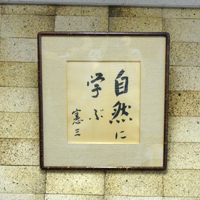 自然に
学ぶ
憲三